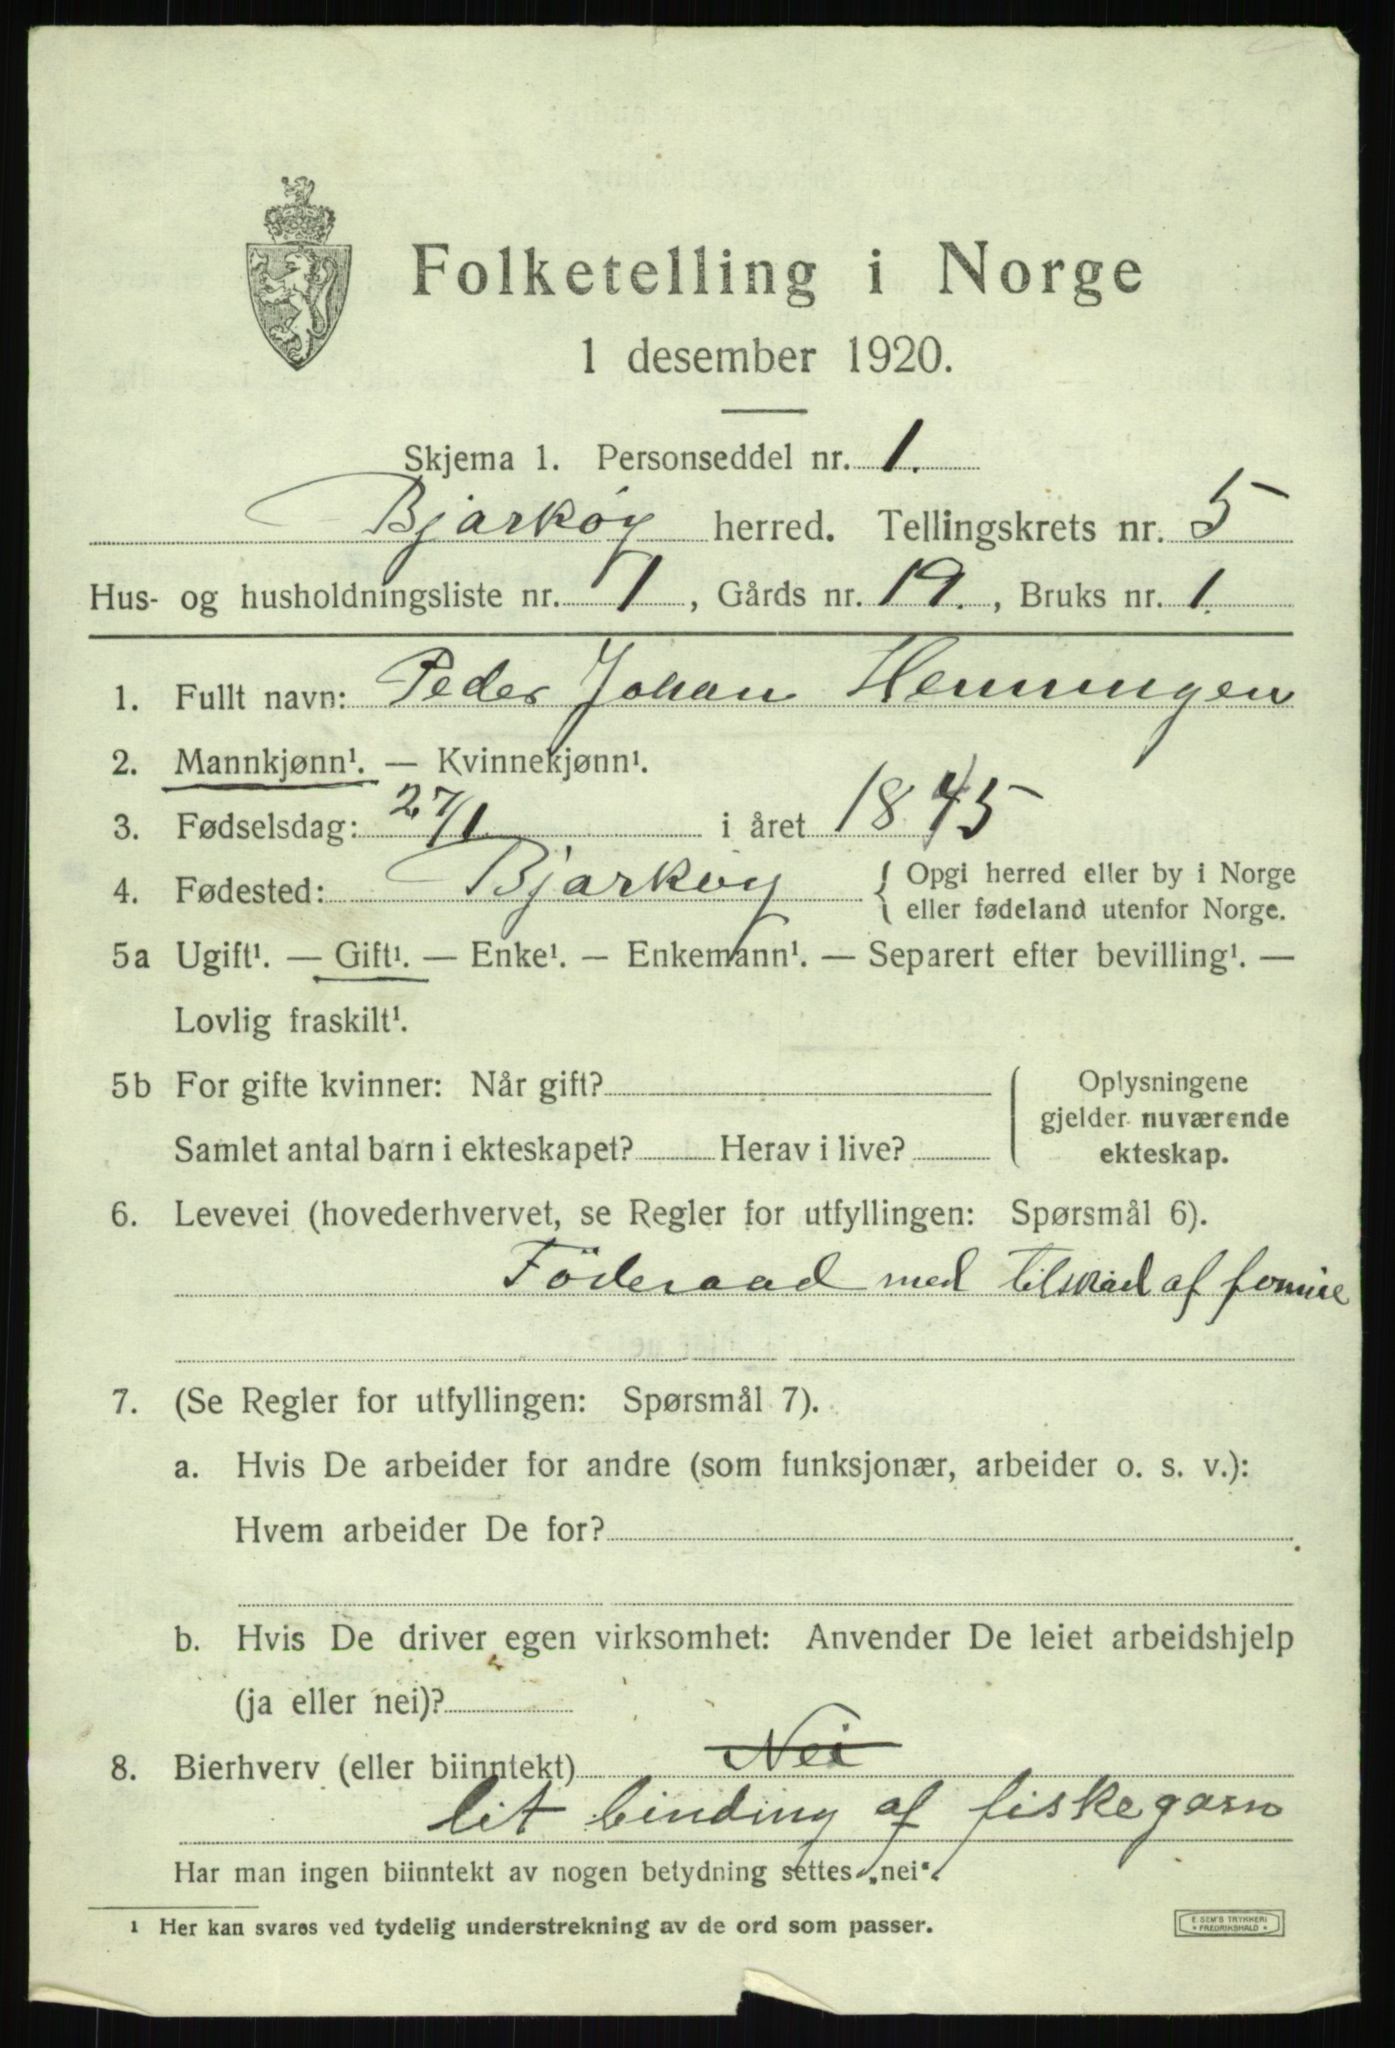 Folketelling i Norge
1 desember 1920.
Skjema 1. Personseddel nr. 1.
Bjarkøy herred. Tellingskrets nr. 5
Hus- og husholdningsliste nr. 7, Gårds nr. 19., Bruks nr. 1.
1. Fullt navn: Peder Johan Henningen
2. Mannkjønn¹. — Kvinnekjønn¹.
3. Fødselsdag: 27/1 i året 1845
4. Fødested: Bjarkøy { Opgi herred eller by i Norge
eller fødeland utenfor Norge.
5a Ugift¹. — Gift¹. — Enke¹. — Enkemann¹. — Separert efter bevilling¹. —
Lovlig fraskilt¹.
5b For gifte kvinner: Når gift?
Samlet antal barn i ekteskapet? Herav i live?
Oplysningene
gjelder nuværende
ekteskap.
6. Levevei (hovederhvervet, se Regler for utfyllingen: Spørsmål 6).
Föderaad med af
7. (Se Regler for utfyllingen: Spørsmål 7).
a. Hvis De arbeider for andre (som funksjonær, arbeider o. s. v.):
Hvem arbeider De for?
b. Hvis De driver egen virksomhet: Anvender De leiet arbeidshjelp
(ja eller nei)?
8. Bierhverv (eller biinntekt) Nei
lit binding af fiskegarn
Har man ingen biinntekt av nogen betydning settes „nei“.
¹ Her kan svares ved tydelig understrekning av de ord som passer.
E. SEM'S TRYKKERI
* FREDRIKSHALD *